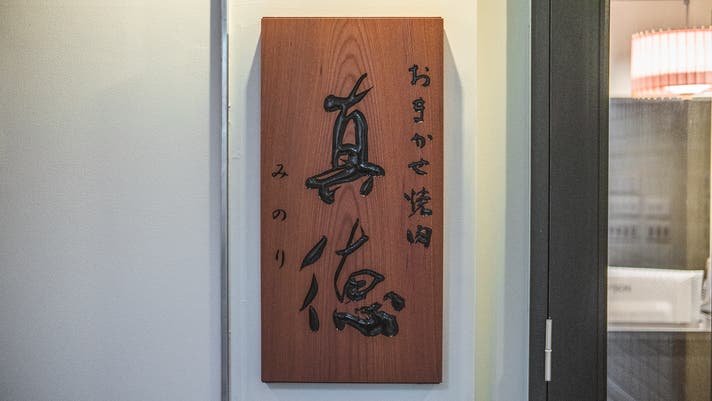 おまかせ焼肉
真徳
みのり